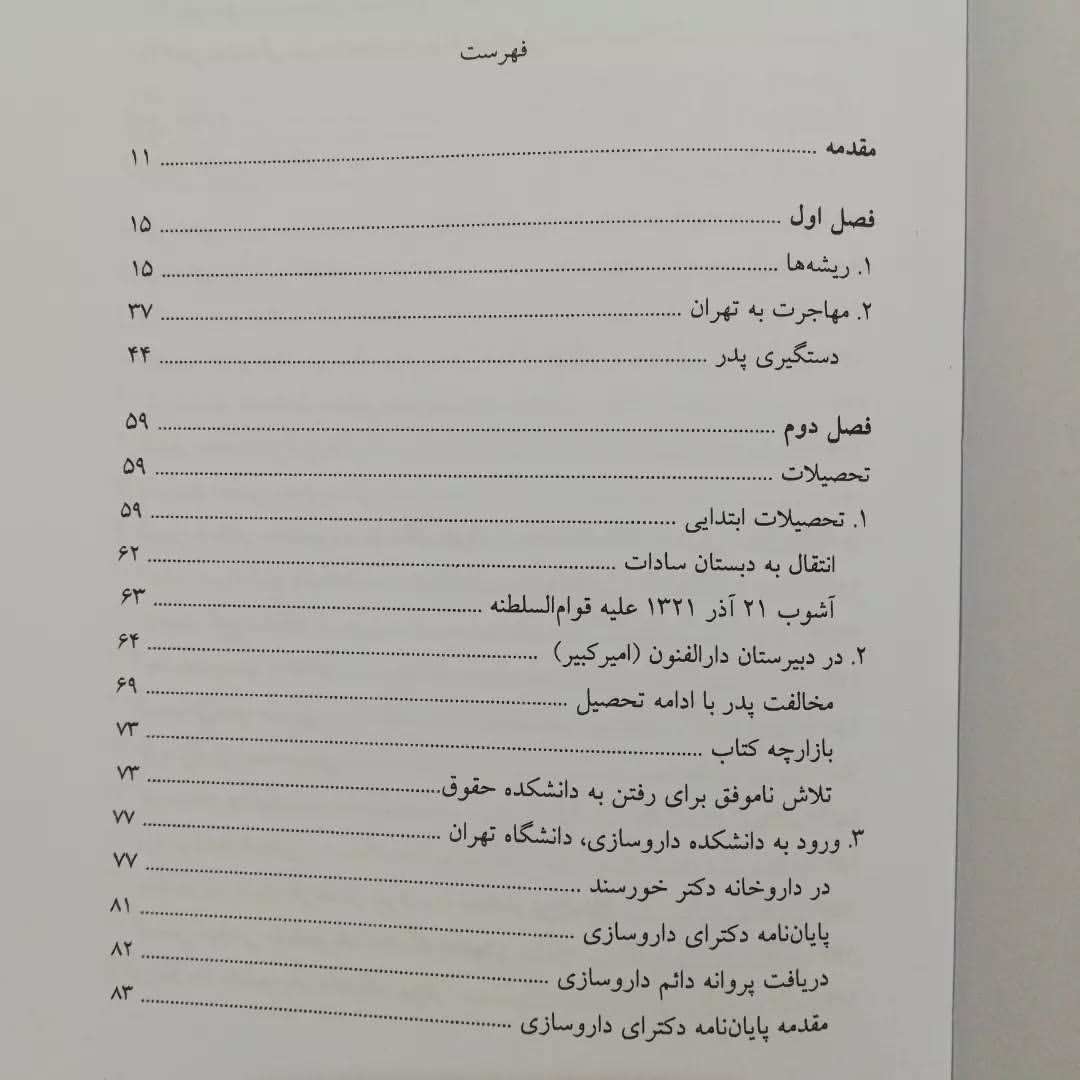 فهرست
مقدمه ........................ ۱۱
فصل اول ........................ ۱۵
۱. ریشه‌ها ........................ ۱۵
۲. مهاجرت به تهران ........................ ۳۷
دستگیری پدر ........................ ۴۴
فصل دوم ........................ ۵۹
تحصیلات ........................ ۵۹
۱. تحصیلات ابتدایی ........................ ۵۹
انتقال به دبستان سادات ........................ ۶۲
آشوب ۲۱ آذر ۱۳۲۱ علیه قوام‌السلطنه ........................ ۶۳
۲. در دبیرستان دارالفنون (امیرکبیر) ........................ ۶۴
مخالفت پدر با ادامه تحصیل ........................ ۶۹
بازارچه کتاب ........................ ۷۳
تلاش ناموفق برای رفتن به دانشکده حقوق ........................ ۷۳
۳. ورود به دانشکده داروسازی، دانشگاه تهران ........................ ۷۷
در داروخانه دکتر خورسند ........................ ۷۷
پایان‌نامه دکترای داروسازی ........................ ۸۱
دریافت پروانه دائم داروسازی ........................ ۸۲
مقدمه پایان‌نامه دکترای داروسازی ........................ ۸۳